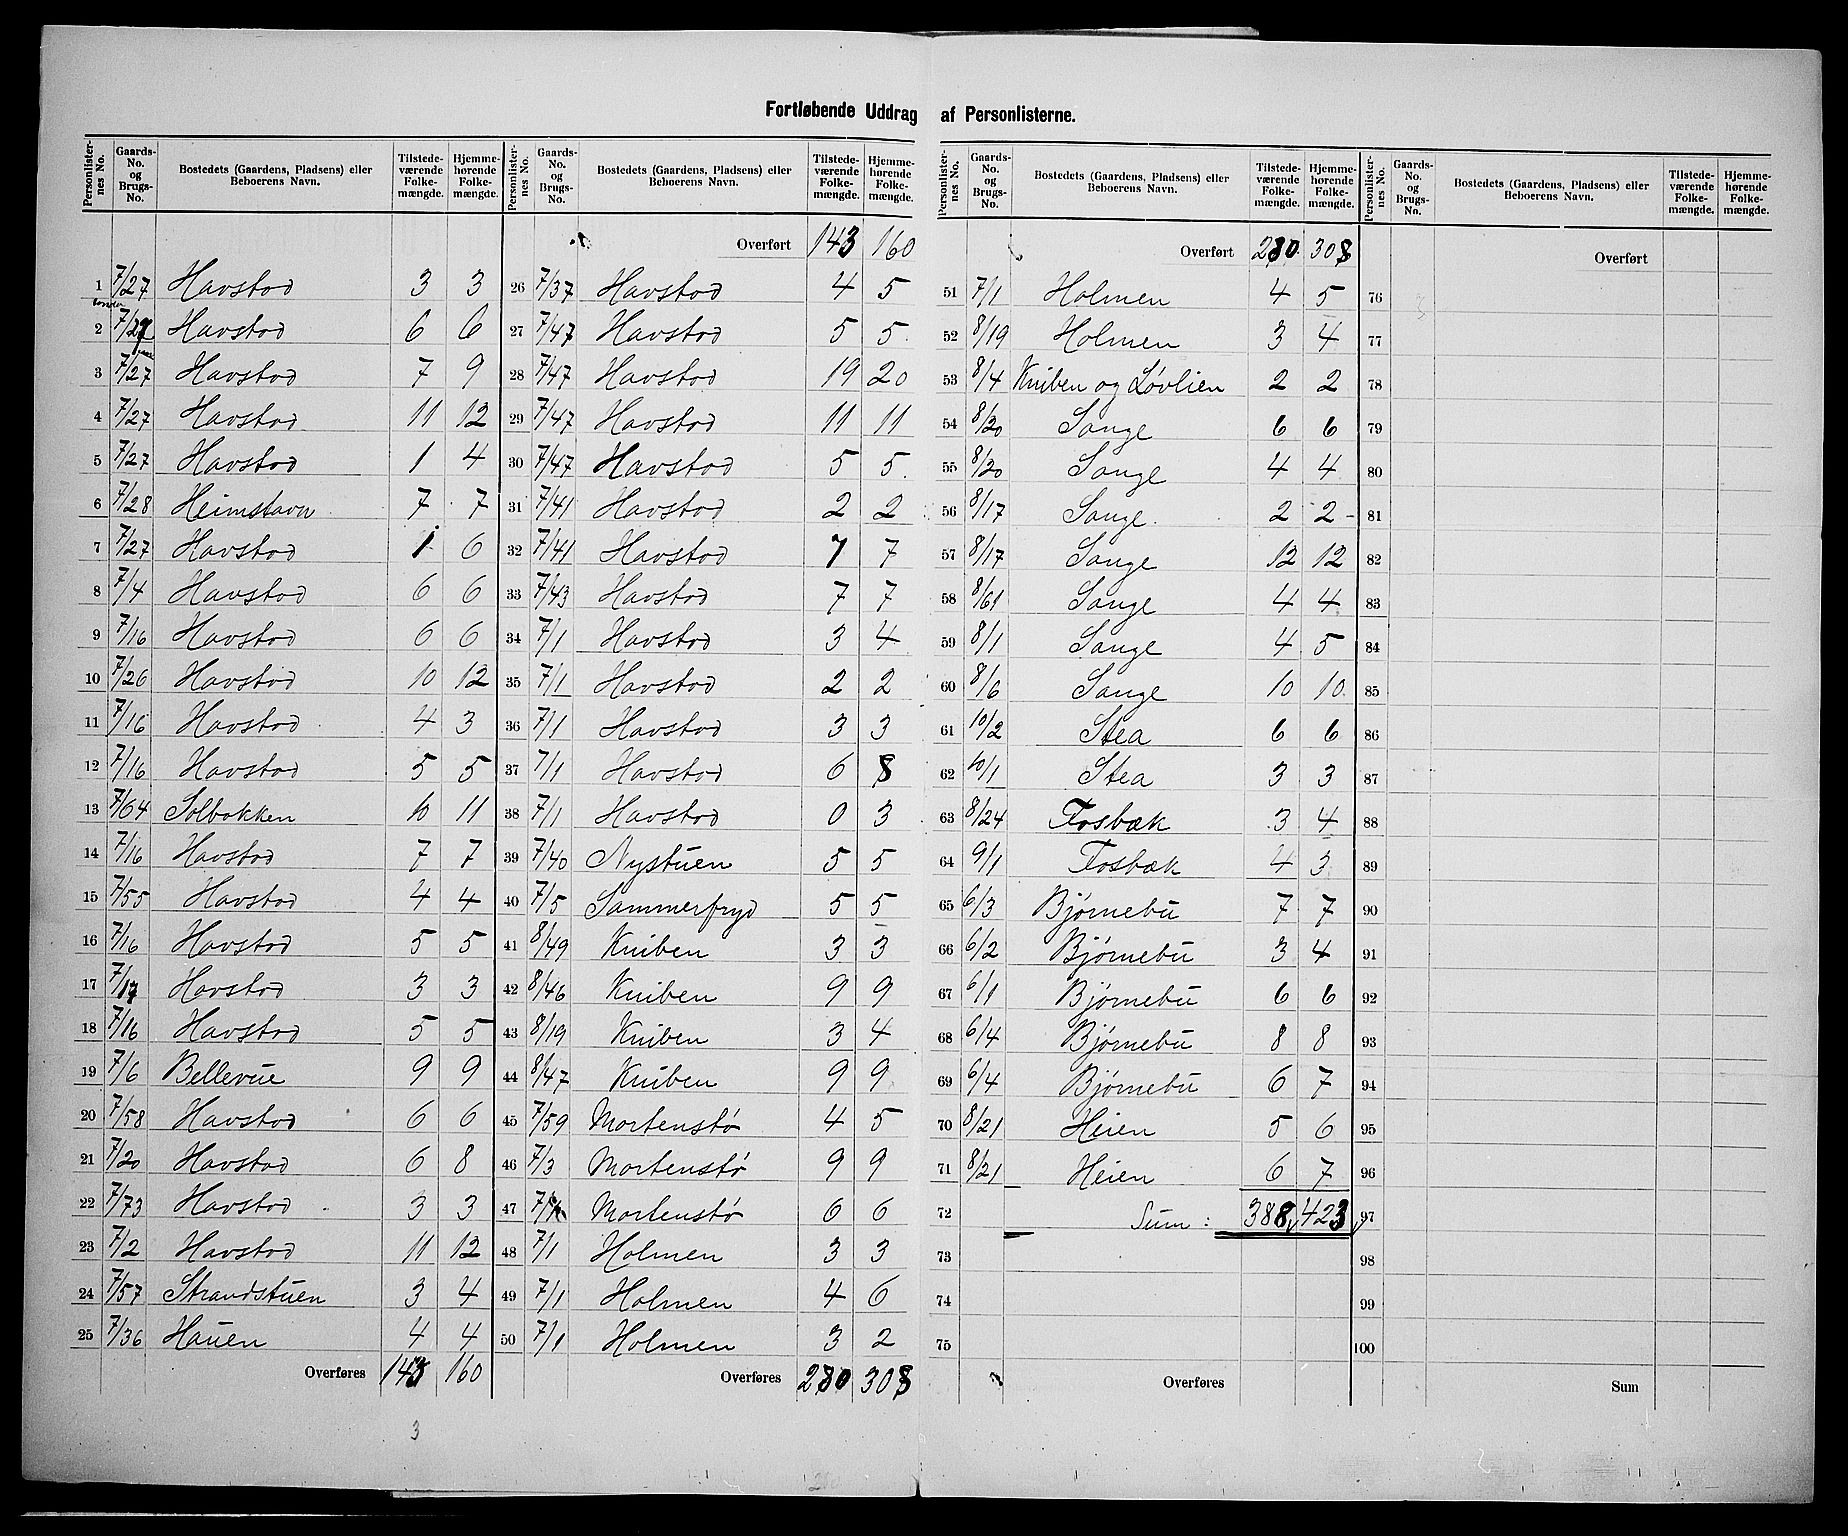 Fortløbende Uddrag af Personlisterne.
Personlister-nes No. Gaards-No. og Brugs-No. Bostedets (Gaardens, Pladsens) eller Beboerens Navn. Tilstede-værende Folke-mængde. Hjemme-hørende Folke-mængde.
1 7/27 Havstad 3 3
2 7/27 Havstad 6 6
3 7/27 Havstad 7 9
4 7/27 Havstad 11 12
5 7/27 Havstad 1 4
6 7/28 Heimstavn 7 7
7 7/27 Havstad 1 6
8 7/4 Havstad 6 6
9 7/16 Havstad 6 6
10 7/26 Havstad 10 12
11 7/16 Havstad 4 3
12 7/16 Havstad 5 5
13 7/64 Solbakken 10 11
14 7/16 Havstad 7 7
15 7/55 Havstad 4 4
16 7/16 Havstad 5 5
17 7/17 Havstad 3 3
18 7/16 Havstad 5 5
19 7/6 Bellevue 9 9
20 7/58 Havstad 6 6
21 7/20 Havstad 6 8
22 7/73 Havstad 3 3
23 7/2 Havstad 11 12
24 7/57 Strandstuen 3 4
25 7/36 Hauen 4 4
Overføres 143 160
Personlister-nes No. Gaards-No. og Brugs-No. Bostedets (Gaardens, Pladsens) eller Beboerens Navn. Tilstede-værende Folke-mængde. Hjemme-hørende Folke-mængde.
Overført 143 160
26 7/37 Havstad 4 5
27 7/47 Havstad 5 5
28 7/47 Havstad 19 20
29 7/47 Havstad 11 11
30 7/47 Havstad 5 5
31 7/41 Havstad 2 2
32 7/41 Havstad 7 7
33 7/43 Havstad 7 7
34 7/1 Havstad 3 4
35 7/1 Havstad 2 2
36 7/1 Havstad 3 3
37 7/1 Havstad 6 8
38 7/1 Havstad 0 3
39 7/40 Nystuen 5 5
40 7/5 Sommerfryd 5 5
41 8/49 Kniben 3 3
42 8/46 Kniben 9 9
43 8/19 Kniben 3 4
44 8/47 Kniben 9 9
45 7/59 Mortenstø 4 5
46 7/3 Mortenstø 9 9
47 Mortenstø 6 6
48 7/1 Holmen 3 3
49 7/1 Holmen 4 6
50 7/1 Holmen 3 2
Overføres 280 308
Personlister-nes No. Gaards-No. og Brugs-No. Bostedets (Gaardens, Pladsens) eller Beboerens Navn. Tilstede-værende Folke-mængde. Hjemme-hørende Folke-mængde.
Overført 280 308
51 7/1 Holmen 4 5
52 8/19 Holmen 3 4
53 8/4 Kniben og Løvlien 2 2
54 8/20 Sange 6 6
55 8/20 Sange 4 4
56 8/17 Sange 2 2
57 8/17 Sange 12 12
58 8/61 Sange 4 4
59 8/1 Sange 4 5
60 8/6 Sange 10 10
61 10/2 Stea 6 6
62 10/1 Stea 3 3
63 8/24 Fosbæk 3 4
64 9/1 Fosbæk 4 3
65 6/3 Bjørnebu 7 7
66 6/2 Bjørnebu 3 4
67 6/1 Bjørnebu 6 6
68 6/4 Bjørnebu 8 8
69 6/4 Bjørnebu 6 7
70 8/21 Heien 5 6
71 8/21 Heien 6 7
72 Sum: 388 423
73
74
75
Overføres
Personlister-nes No. Gaards-No. og Brugs-No. Bostedets (Gaardens, Pladsens) eller Beboerens Navn. Tilstede-værende Folke-mængde. Hjemme-hørende Folke-mængde.
Overført
76
77
78
79
80
81
82
83
84
85
86
87
88
89
90
91
92
93
94
95
96
97
98
99
100
Sum
3